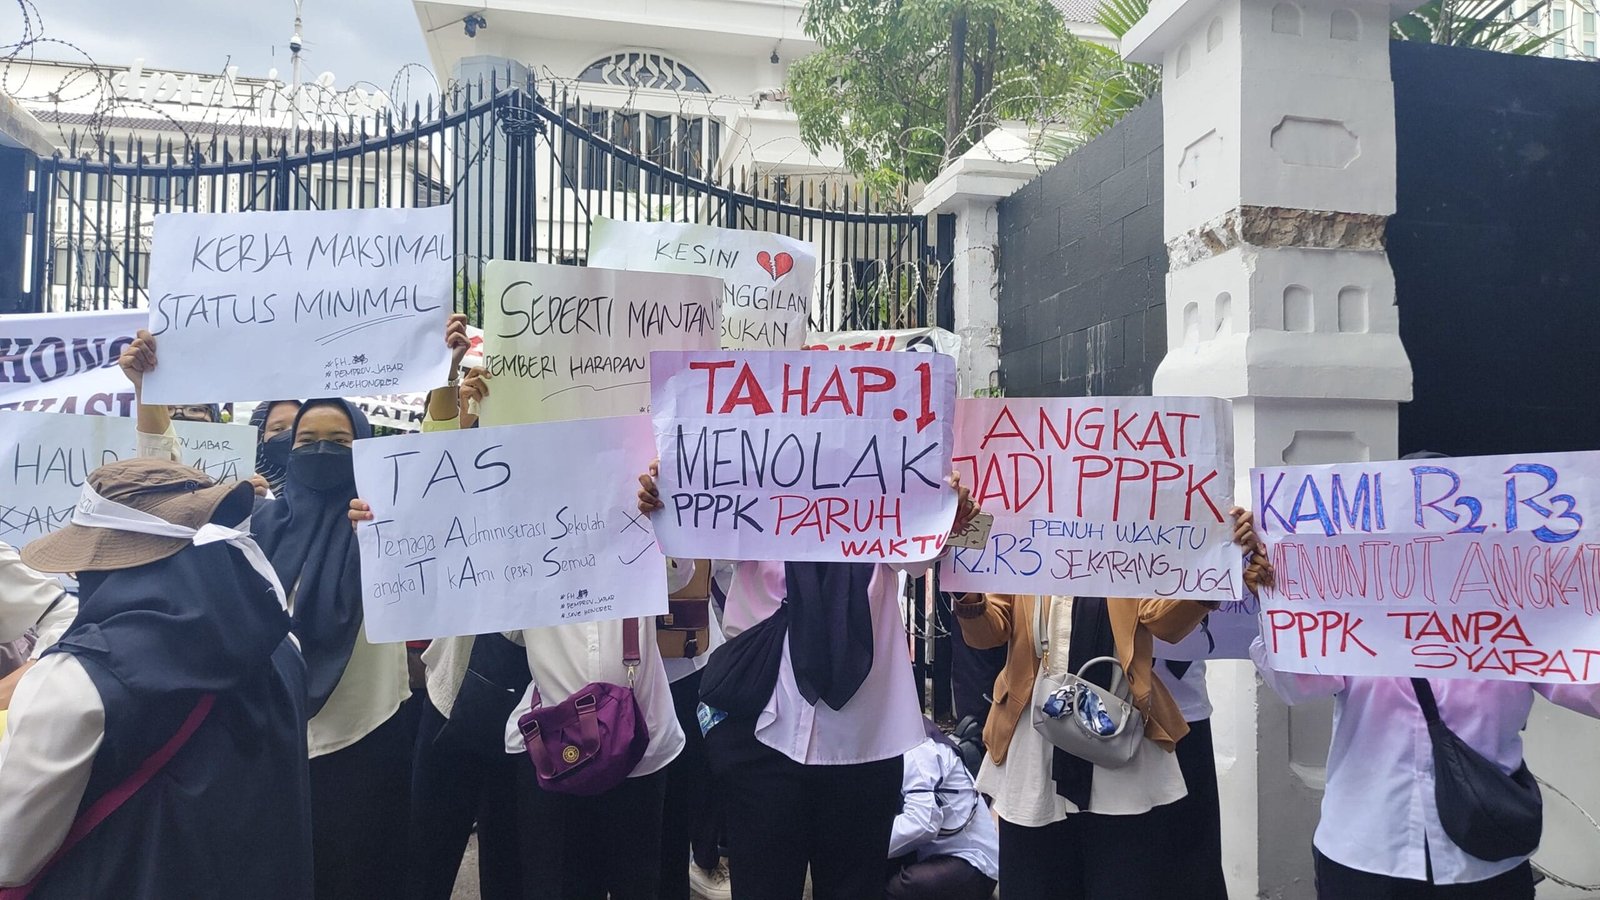 KERJA MAKSIMAL
STATUS MINIMAL
#PEMPROV_JABAR
#SAVEHONORER
KESINI
BUKAN
SEPERTI MANTAN
PEMBERI HARAPAN
HONO
JABAR
KAMI
TAS
Tenaga Administrasi Sekolah
angkaT kAmi (P3K) Semua
#PEMPROV_JABAR
#SAVE HONORER
TAHAP.1
MENOLAK
PPPK PARUH
WAKTU
ANGKAT
JADI PPPK
PENUH WAKTU
R2.R3 SEKARANG JUGA
KAMI R2.R3
MENUNTUT ANGKAT
PPPK TANPA
SYARAT